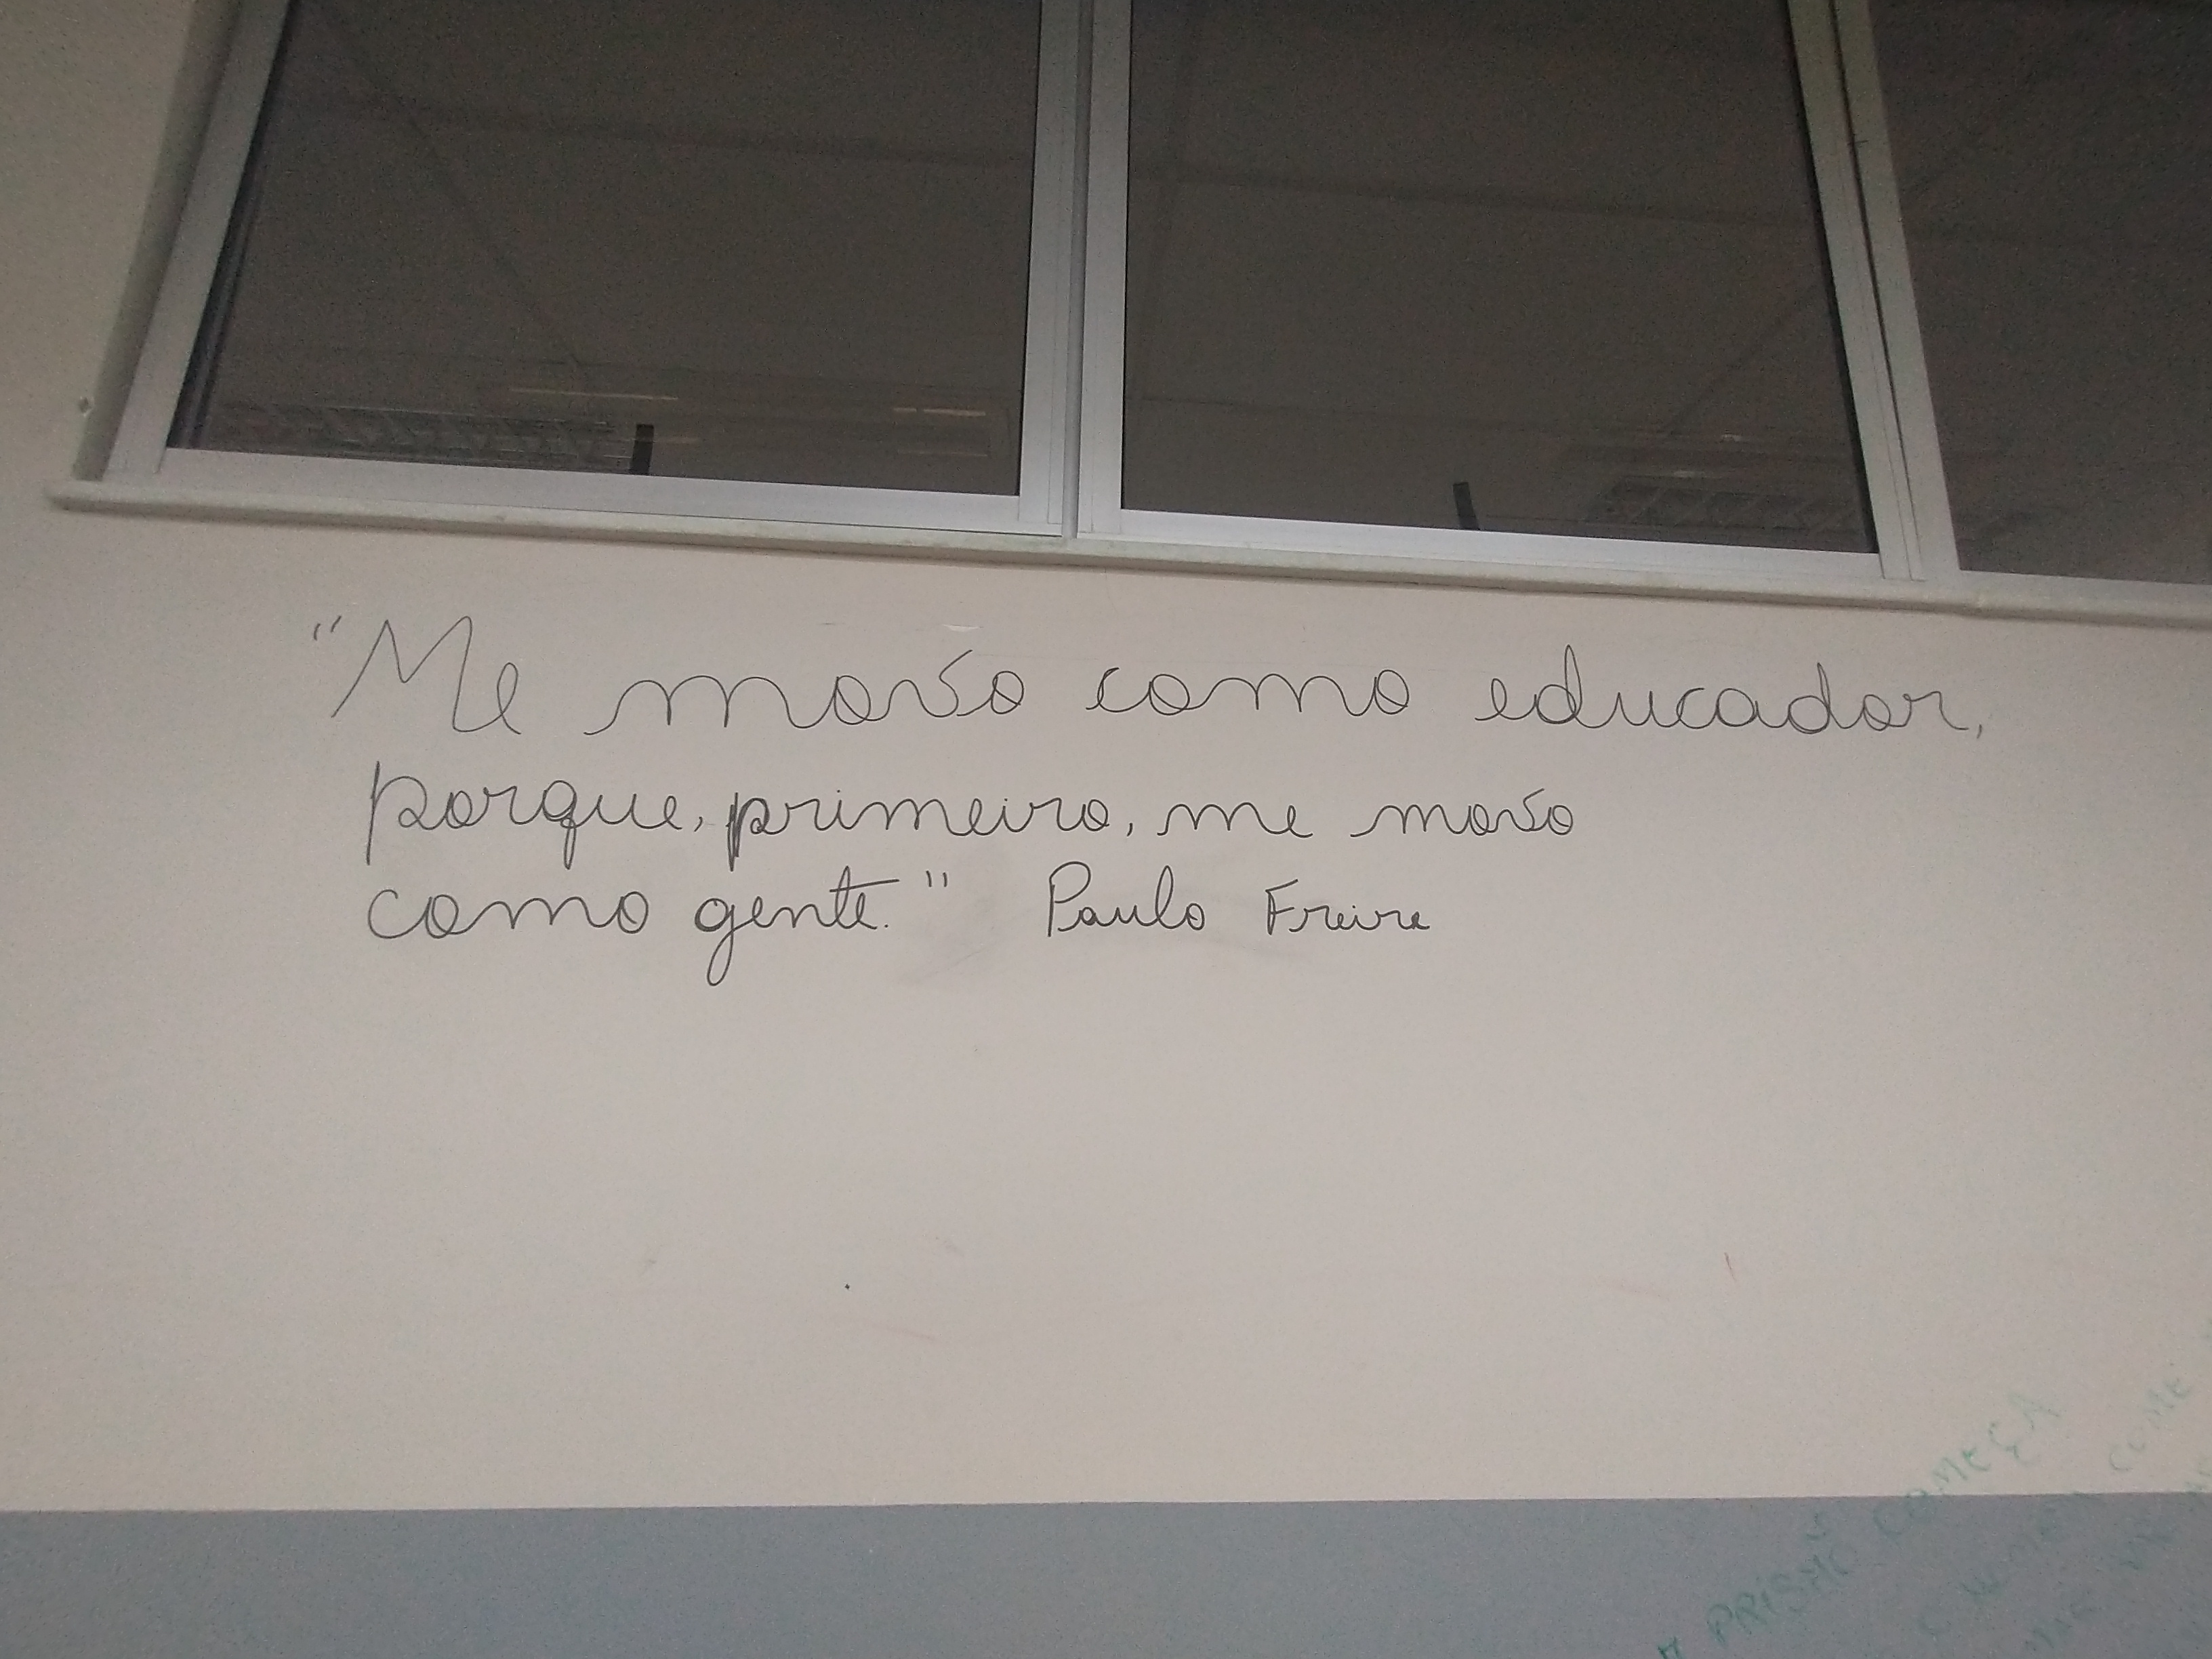 "Me movo como educador,
porque, primeiro, me movo
como gente." Paulo Freire
A PRISÃO COMEÇA